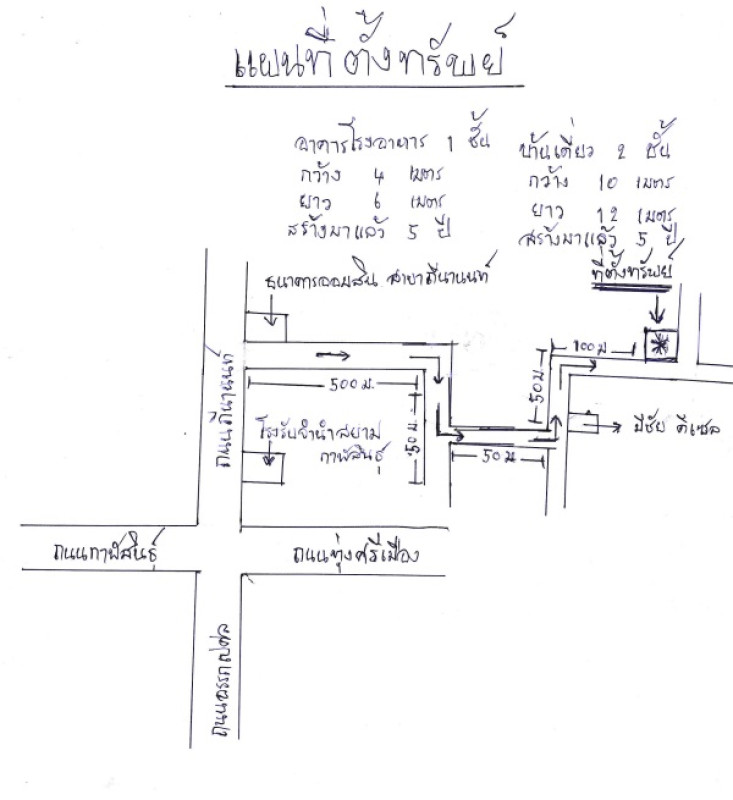 แผนที่ ตั้งทรัพย์
อาคารโรงอาหาร 1 ชั้น
กว้าง 4 เมตร
ยาว 6 เมตร
สร้างมาแล้ว 5 ปี
บ้านเดี่ยว 2 ชั้น
กว้าง 10 เมตร
ยาว 12 เมตร
สร้างมาแล้ว 5 ปี
ที่ตั้งทรัพย์
ธนาคารออมสิน สาขาถีนานนท์
100 ม
ถนนถีนานนท์
500 ม.
50 ม
50 ม
โรงรับจำนำสยาม
กาฬสินธุ์
มีชัย ดีเซล
50 ม
ถนนกาฬสินธุ์
ถนนทุ่งศรีเมือง
ถนนอรรถเปศล